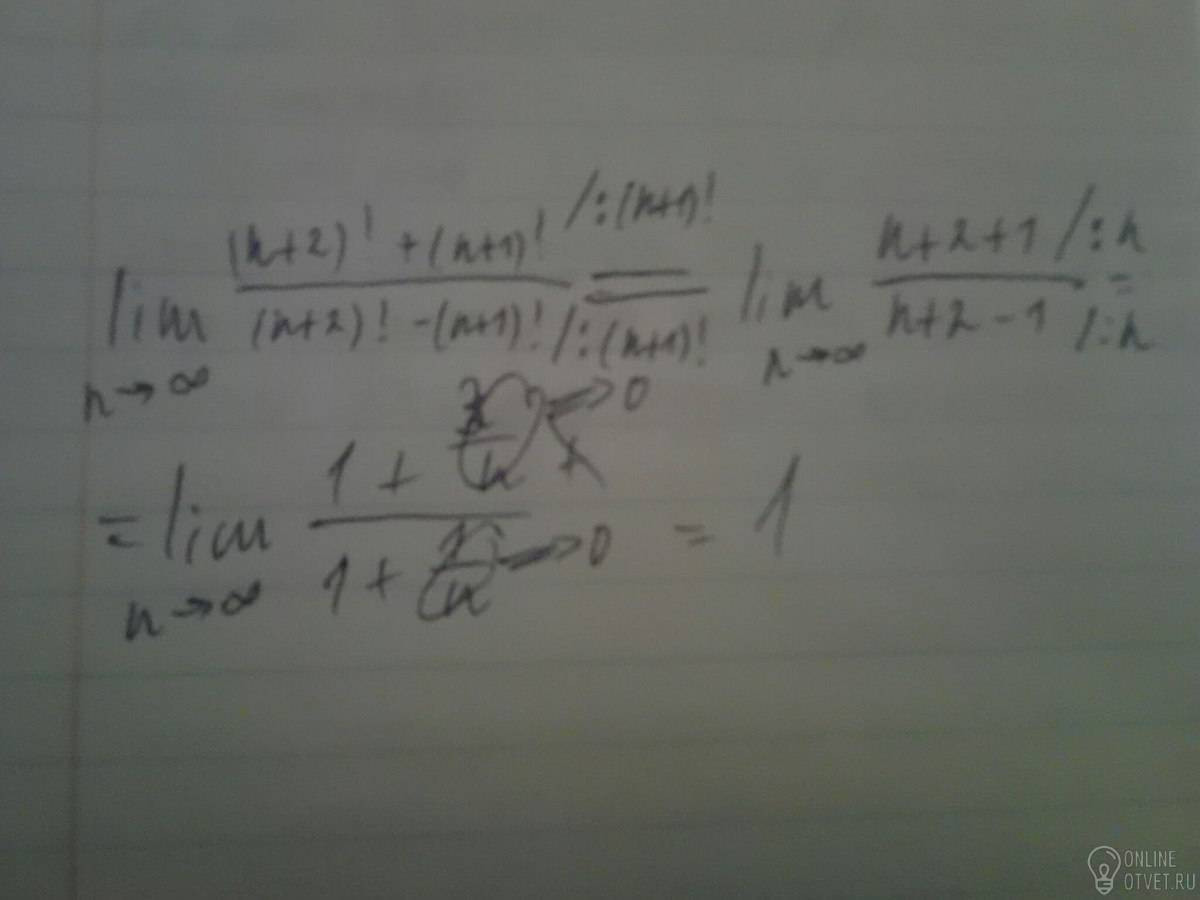 lim n→∞ ((n+2)! + (n+1)! /:(n+1)!) / ((n+2)! - (n+1)! /:(n+1)!) = lim n→∞ (n+2+1 /:n) / (n+2-1 /:n) =
= lim n→∞ (1 + 3/n →0) / (1 + 1/n →0) = 1
ONLINE
OTVET.RU